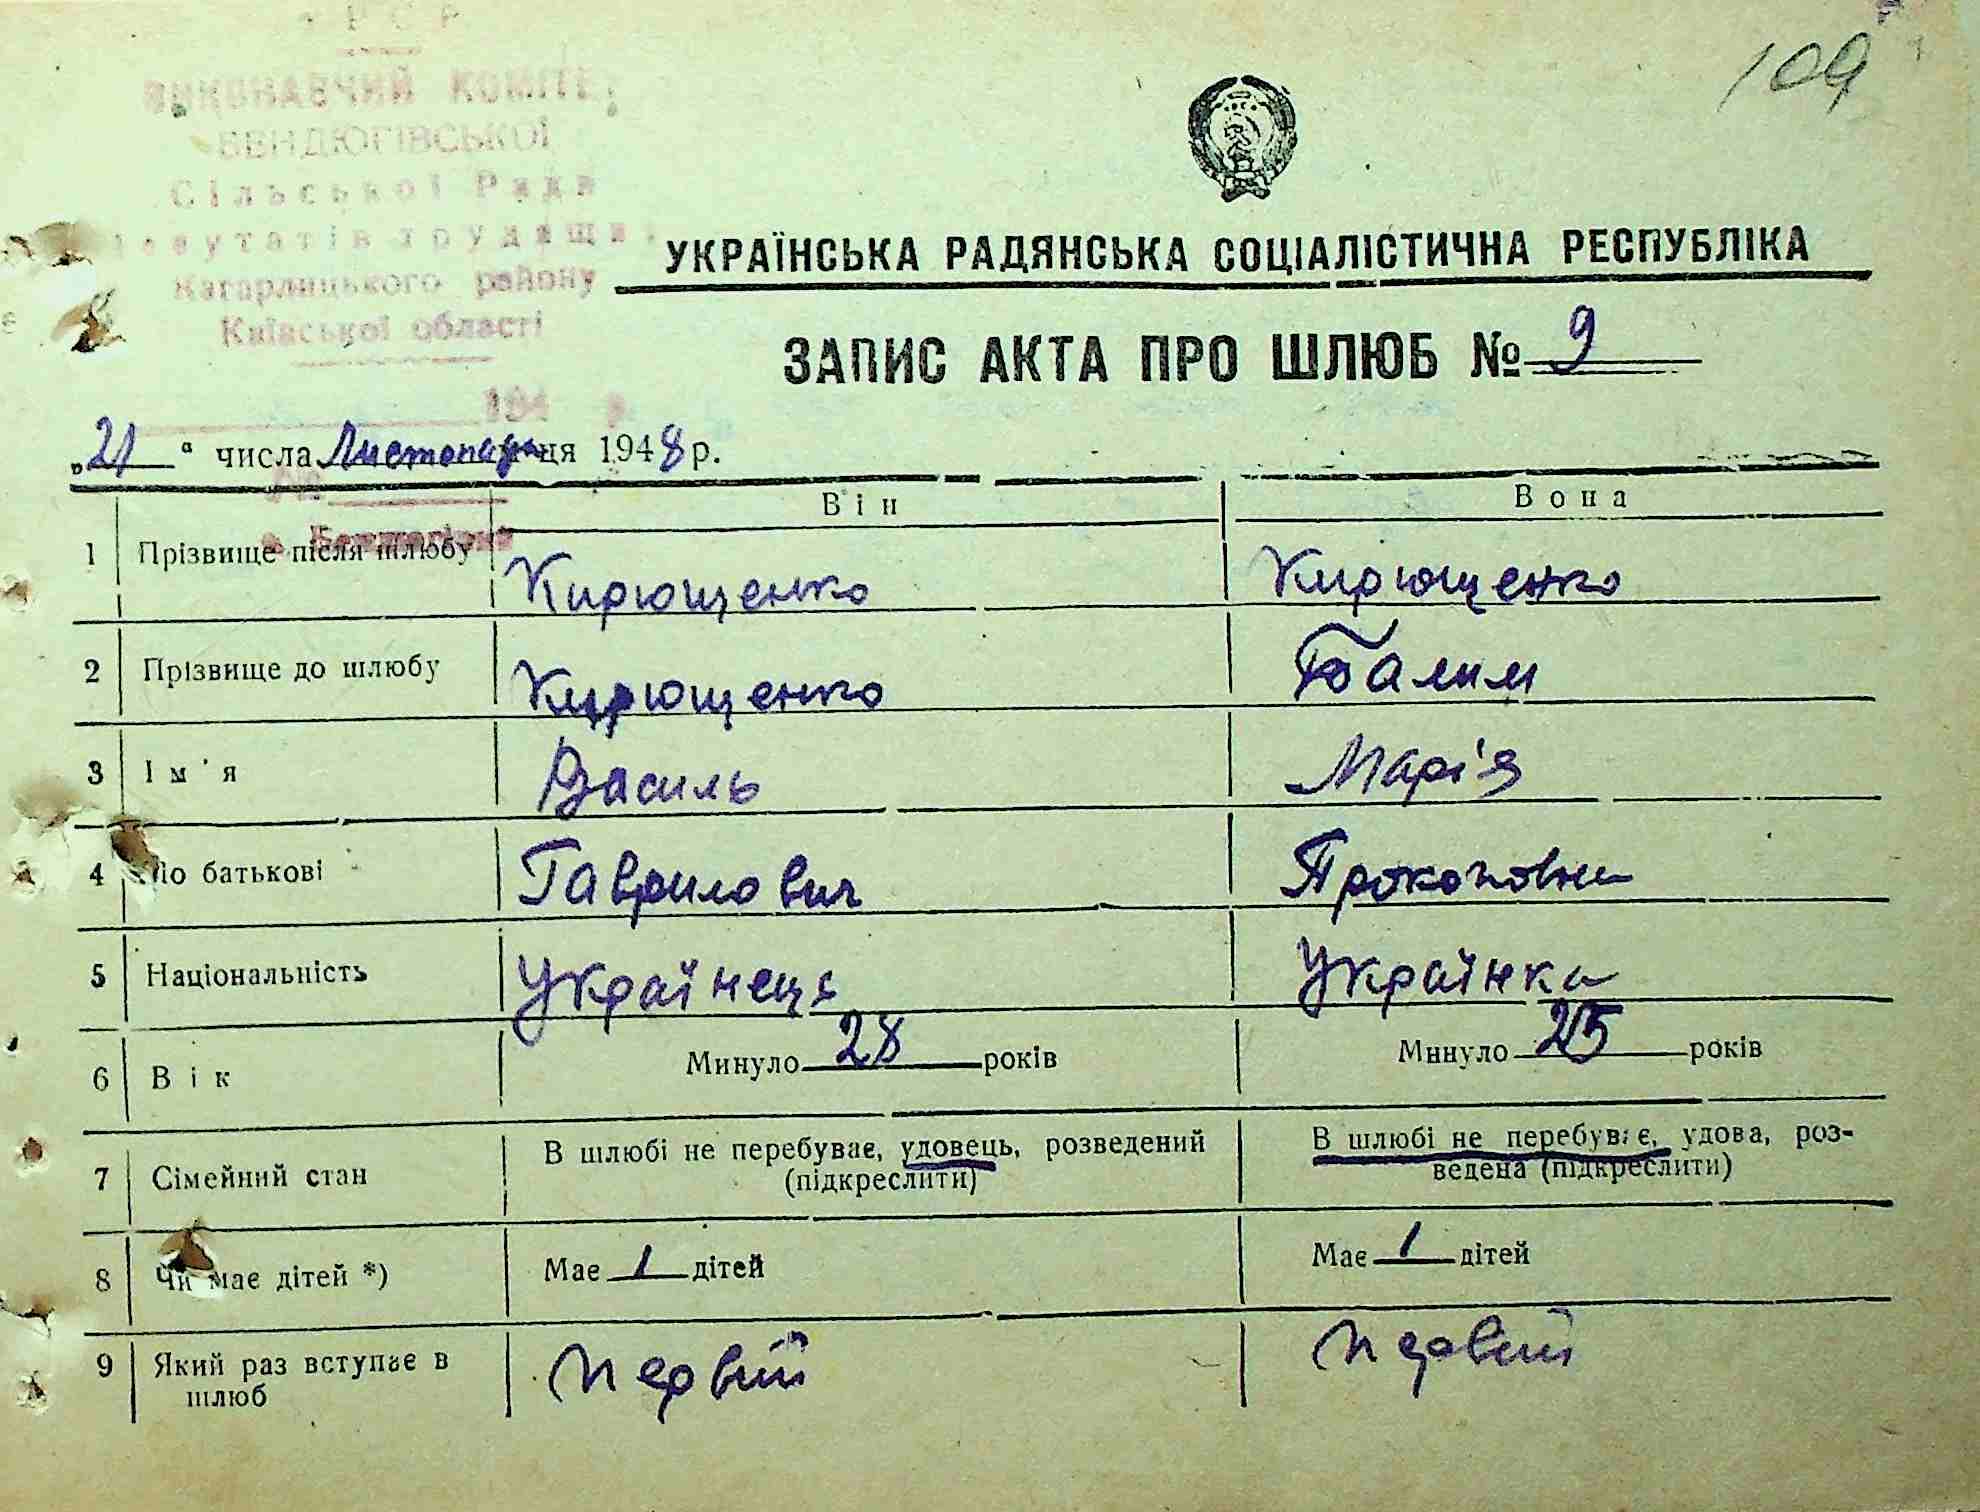 109
РСР
ВИКОНАВЧИЙ КОМІТЕ
БЕНДЮГІВСЬКОЇ
Сільської Ради
депутатів трудящи
Кагарлицького району
Київської області
194 р.
УКРАЇНСЬКА РАДЯНСЬКА СОЦІАЛІСТИЧНА РЕСПУБЛІКА
ЗАПИС АКТА ПРО ШЛЮБ № 9
„21“ числа Листопада ця 1948 р.
Він Вона
1 Прізвище після шлюбу Кирющенко Кирющенко
2 Прізвище до шлюбу Кирющенко Балим
3 Ім'я Василь Марі'я
4 По батькові Гаврилович Прокоповна
5 Національність Українець Українка
6 Вік Минуло 28 років Минуло 25 років
7 Сімейний стан В шлюбі не перебуває, удовець, розведений (підкреслити) В шлюбі не перебуває, удова, роз-
ведена (підкреслити)
8 Чи має дітей *) Має 1 дітей Має 1 дітей
9 Який раз вступає в шлюб первий первий